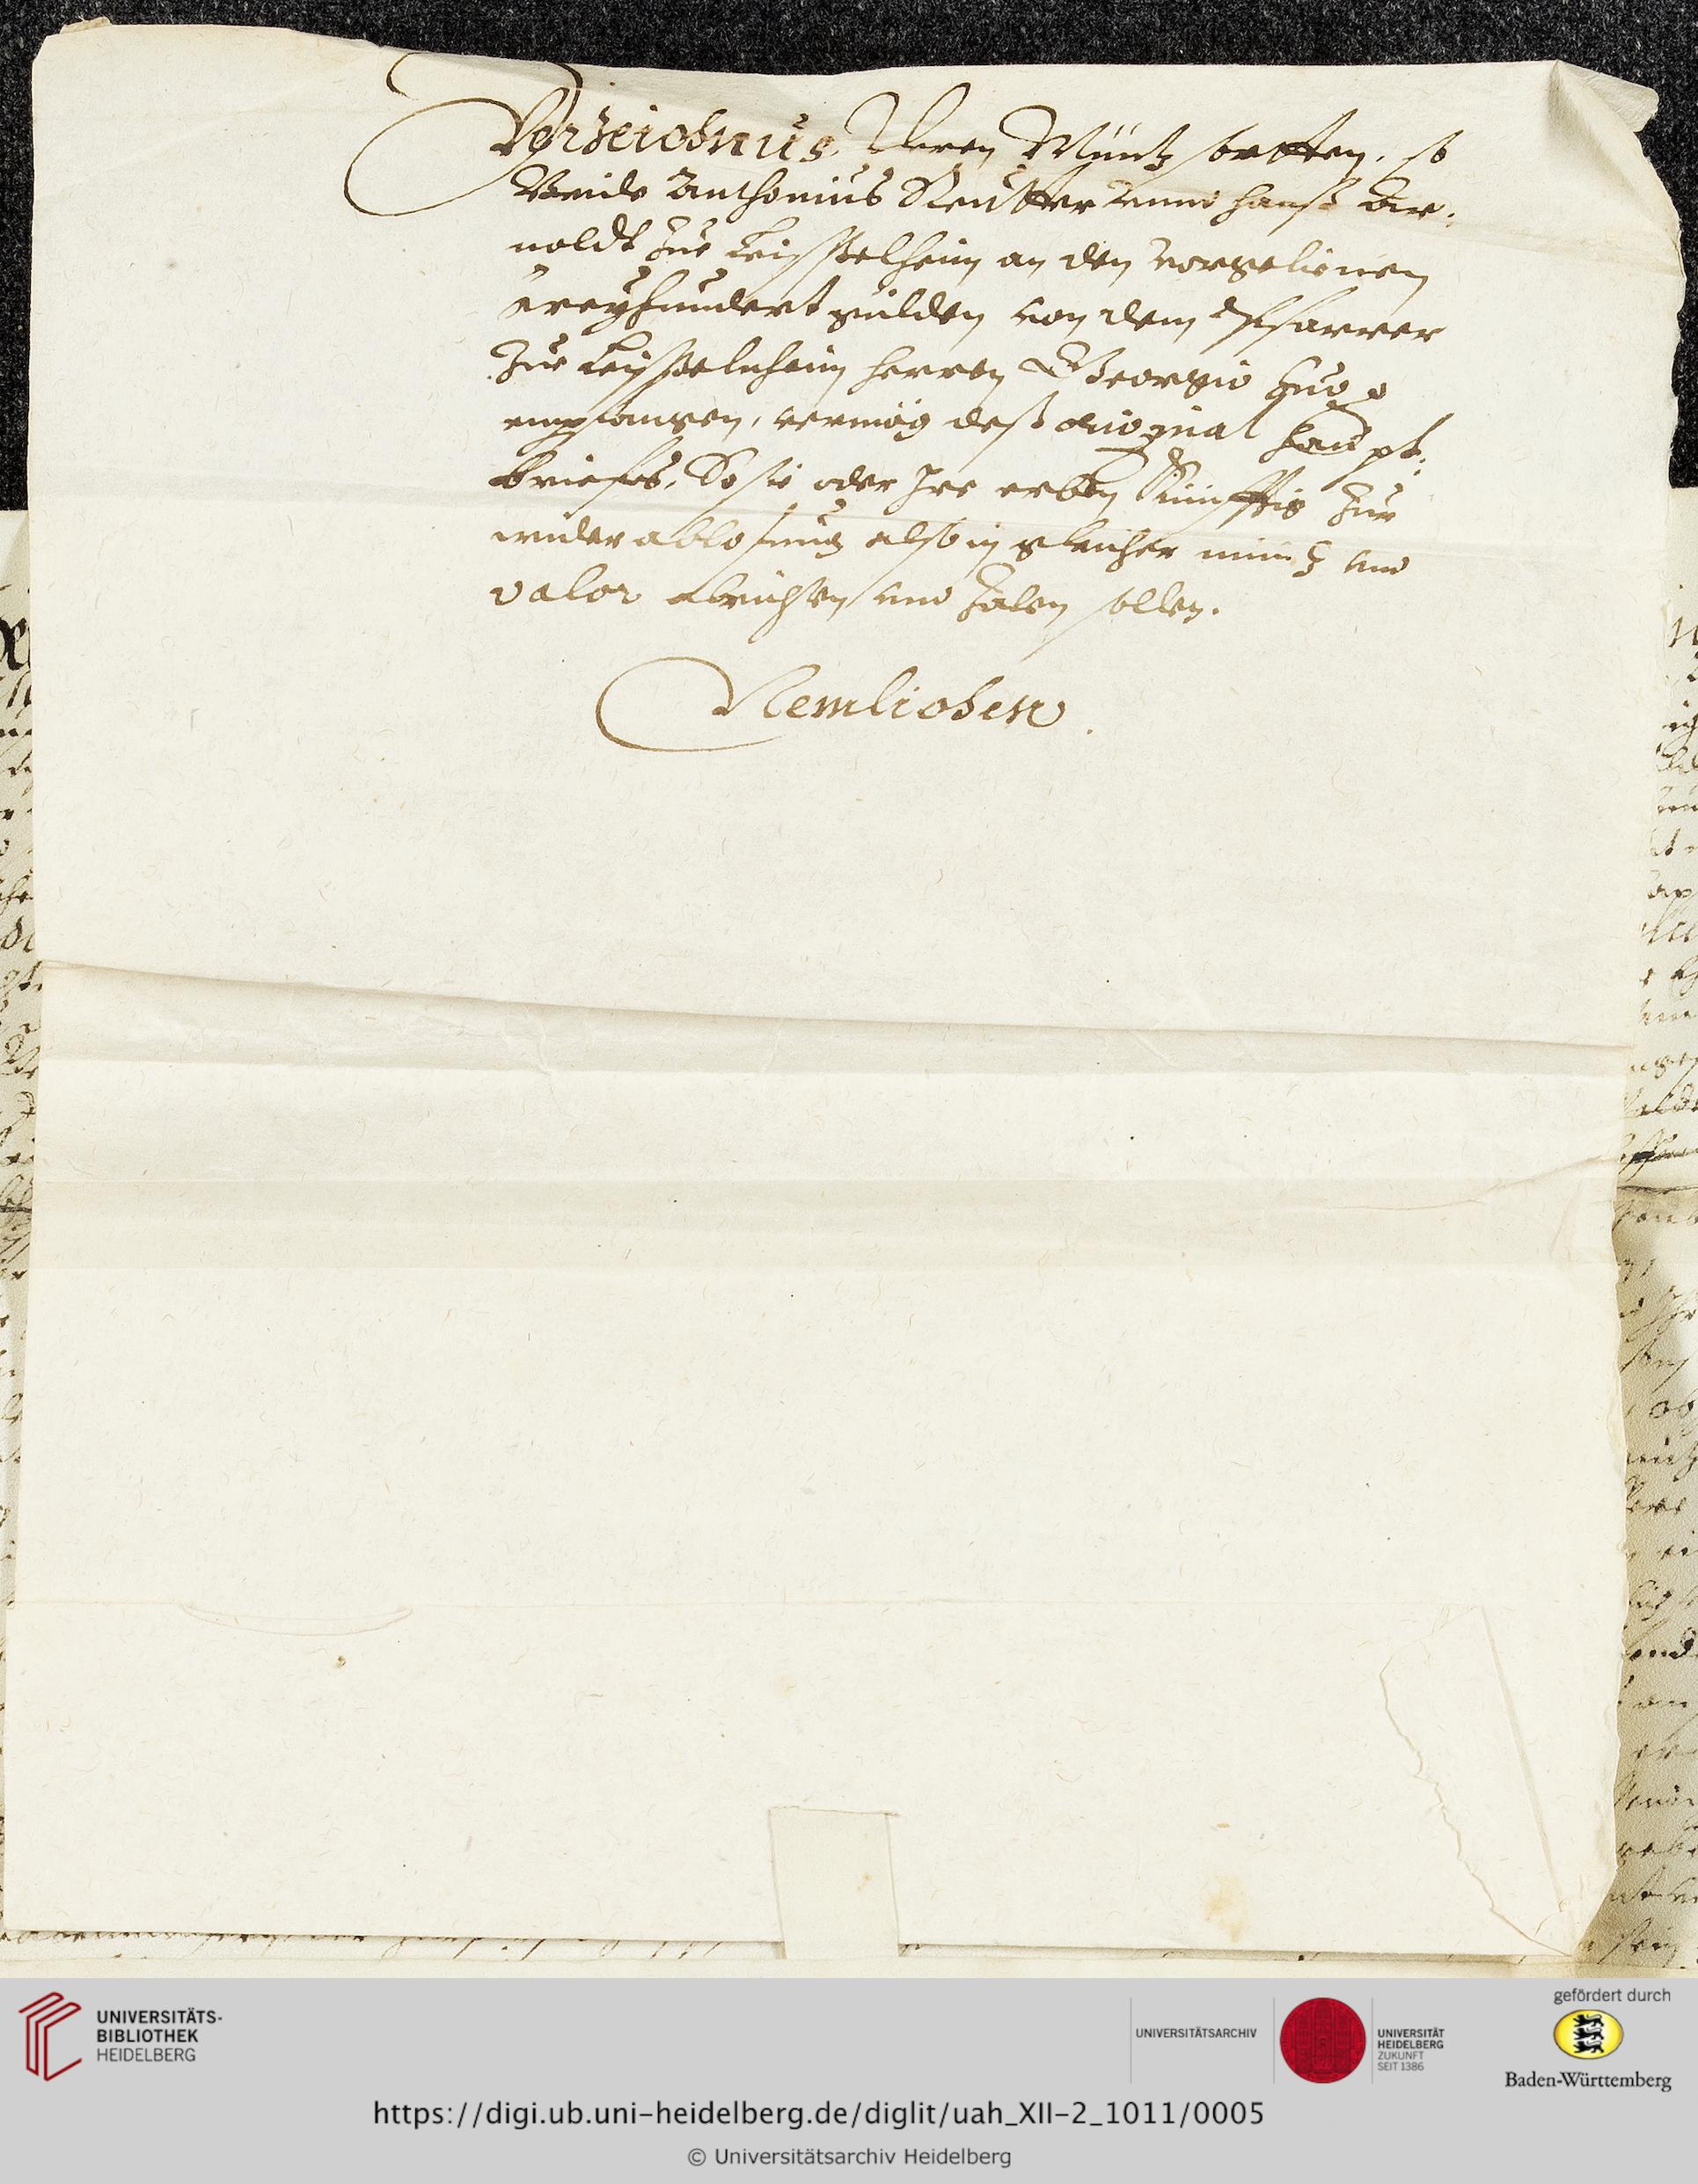 Verzeichnus, Deren Müntz sortten, so
Beide Anthonius Reutter unnd Hanß Ar:
noldt zue Leißelheim an den vorgelienen
dreyhundert gulden von dem Pfarrer
zue Leißelnheim herren Georgio
empfangen, vermög deß original haupt:
brieffs, So sie oder Ire erben Künfftig zur
widerablosung also in gleicher müntz und
valor abrichten und zalen sollen.
Nemlichen.
UNIVERSITÄTS-
BIBLIOTHEK
HEIDELBERG
UNIVERSITÄTSARCHIV
UNIVERSITÄT
HEIDELBERG
ZUKUNFT
SEIT 1386
gefördert durch
Baden-Württemberg
https://digi.ub.uni-heidelberg.de/diglit/uah_XII-2_1011/0005
© Universitätsarchiv Heidelberg